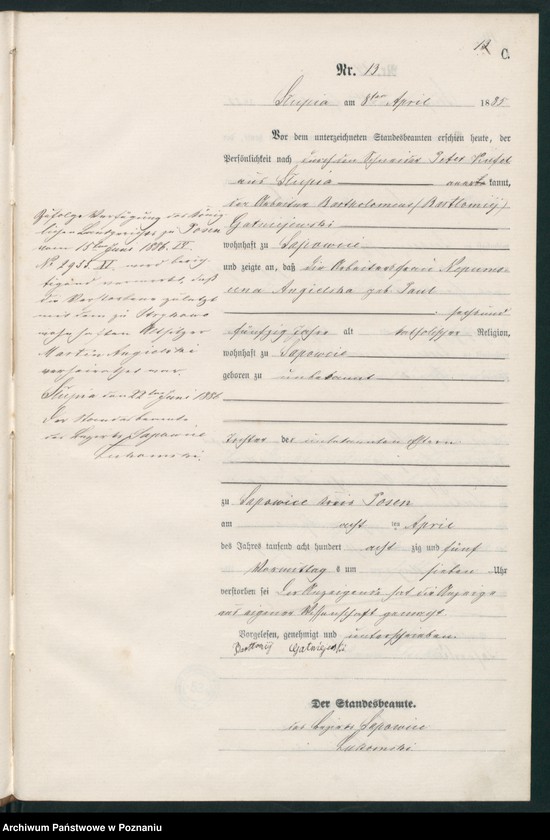 12
C.
Nr. 13
Słupia am 8ten April 1885
Vor dem unterzeichneten Standesbeamten erschien heute, der
Persönlichkeit nach durch den Schneider Peter
aus Słupia anerkannt,
der Arbeiter Bartholomeus (Bartłomij)
Gatniejewski
wohnhaft zu Sapowice
und zeigte an, daß die Arbeiterfrau Nepomu-
cena Angielska geb Paul
sechsund
fünfzig Jahre alt katholischer Religion,
wohnhaft zu Sapowice
geboren zu unbekannt
Tochter der unbekannten Eltern
zu Sapowice Kreis Posen
am acht ten April
des Jahres tausend acht hundert acht zig und fünf
Vormittag s um sieben Uhr
verstorben sei Der Anzeigende hat die Anzeige
aus eigener Wissenschaft gemacht
Vorgelesen, genehmigt und unterschrieben.
Bartłomij
Der Standesbeamte.
des Bezirks Sapowice
Łukomski
Zufolge Verfügung des König-
lichen Landgerichts zu Posen
vom 15ten Juni 1886 IV.
No 2955. VI wird berich-
tigend vermerkt, daß
die Verstorbene zuletzt
mit dem zu Strykowo
wohnhaften Altsitzer
Martin Angielski
verheirathet war.
Słupia den 22ten Juni 1886
Der Standesbeamte
des Bezirks Sapowice
Łukomski.
Archiwum Państwowe w Poznaniu